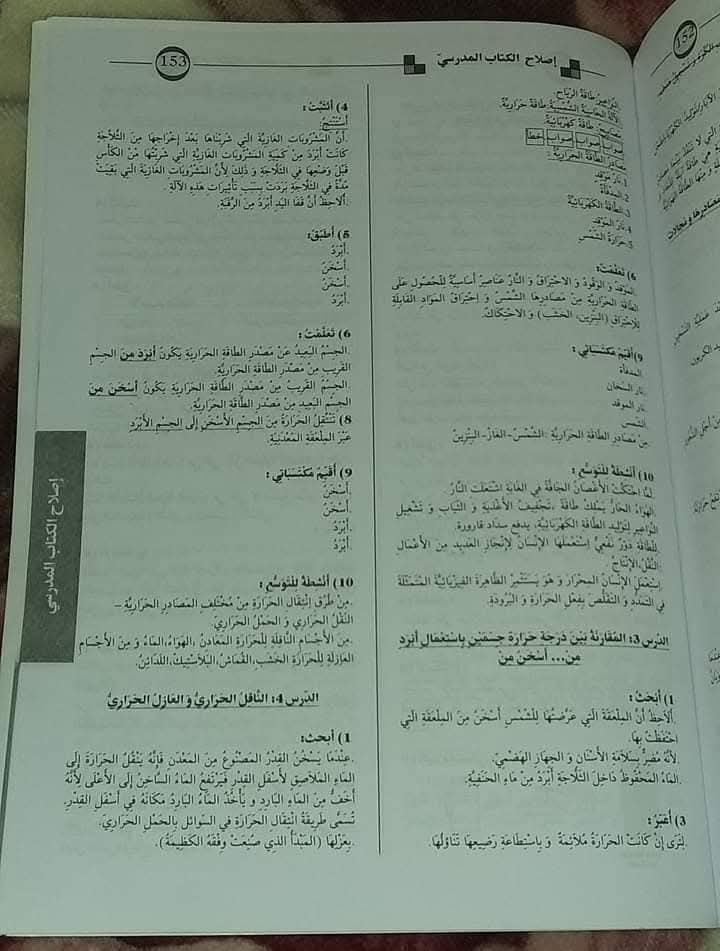 153
إصلاح الكتاب المدرسيّ
النّواعير:طاقة الرّياح.
الآلة الحاسبة الشّمسيّة:طاقة حراريّة.
مصابيح: طاقة كهربائيّة.
صواب صواب صواب خطأ
مصادر الطّاقة الحراريّة:
1.نار موقد
2.المدفأة
3.الطّاقة الكهربائيّة
4.نار الموقد
5.حرارة الشّمس
6) تعلّمت:
.الموقد و الوقود و الاحتراق و النّار عناصر أساسيّة للحصول على
الطّاقة الحراريّة من مصادرها الشّمس و احتراق الموادّ القابلة
للاحتراق (البنزين، الخشب) و الاحتكاك.
9) أقيّم مكتسباتي:
المدفأة
.نار السّخان
.نار الموقد
.الشّمس
من مصادر الطّاقة الحراريّة :الشّمس-الغاز- البنزين
10) أنشطة للتوسّع:
.لمّا احتكّت الأغصان الجافّة في الغابة اشتعلت النّار.
.الهواء الحارّ يملك طاقة ،تجفيف الأغذية و الثّياب و تشغيل
النّواعير لتوليد الطّاقة الكهربائيّة، يدفع سداد قارورة.
.للطّاقة دور نفعيّ استعملها الإنسان لإنجاز العديد من الأعمال
النّقل،الإنتاج.
.استعمل الإنسان المحرار و هو يستثمر الظّاهرة الفيزيائيّة المتمثّلة
في التمدّد و التقلّص بفعل الحرارة و البرودة.
الدّرس 3: المقارنة بين درجة حرارة جسمين باستعمال أبرد
من... أسخن من
1) أبحث:
.ألاحظ أنّ الملعقة الّتي عرّضتها للشّمس أسخن من الملعقة الّتي
احتفظت بها.
.لأنّه مضرّ بسلامة الأسنان و الجهاز الهضميّ.
.الماء المحفوظ داخل الثلّاجة أبرد من ماء الحنفيّة.
3) أعبّر:
.لترى إن كانت الحرارة ملائمة و باستطاعة رضيعها تناولها.
4) أتثبّت:
أستنتج:
.أنّ المشروبات الغازيّة الّتي شربناها بعد إخراجها من الثلّاجة
كانت أبرد من كميّة المشروبات الغازيّة الّتي شربتها من الكأس
قبل وضعها في الثلّاجة و ذلك لأنّ المشروبات الغازيّة الّتي بقيت
مدّة في الثلّاجة بردت بسبب تأثيرات هذه الآلة .
.ألاحظ أنّ قفا اليد أبرد من الرّقبة.
5) أطبّق:
.أبرد
.أسخن
.أسخن
.أبرد
6) تعلّمت:
.الجسم البعيد عن مصدر الطّاقة الحراريّة يكون أبرد من الجسم
القريب من مصدر الطّاقة الحراريّة.
.الجسم القريب من مصدر الطّاقة الحراريّة يكون أسخن من
الجسم البعيد من مصدر الطّاقة الحراريّة.
8) تنتقل الحرارة من الجسم الأسخن إلى الجسم الأبرد
عبر الملعقة المعدنيّة.
9) أقيّم مكتسباتي:
.أسخن
.أسخن
.أبرد
.أبرد
10) أنشطة للتوسّع:
.من طرق انتقال الحرارة من مختلف المصادر الحراريّة –
النّقل الحراري و الحمل الحراري.
.من الأجسام النّاقلة للحرارة المعادن ،الهواء،الماء و من الأجسام
العازلة للحرارة الخشب،القماش،البلاستيك،اللدائن.
الدّرس 4: النّاقل الحراريّ و العازل الحراريّ
1) أبحث:
.عندما يسخن القدر المصنوع من المعدن فإنّه ينقل الحرارة إلى
الماء الملاصق لأسفل القدر فيرتفع الماء السّاخن إلى الأعلى لأنّه
أخفّ من الماء البارد و يأخذ الماء البارد مكانه في أسفل القدر.
تسمّى طريقة انتقال الحرارة في السوائل بالحمل الحراريّ.
.بعزلها (المبدأ الذي صنعت وفقه الكظيمة).
إصلاح الكتاب المدرسي
152